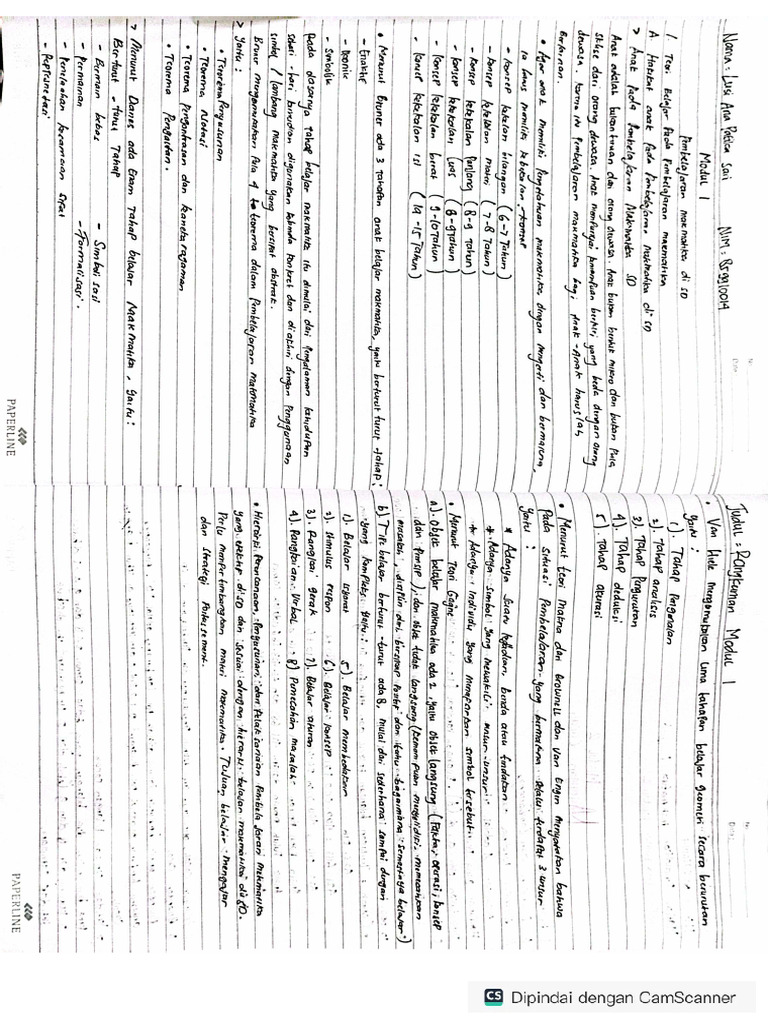 Nama : Lusi Ana Pratiwi Sari NIM : 859910014
Modul 1
Pembelajaran matematika di SD
1. Teori Belajar Pada Pembelajaran matematika
A. Hakikat anak Pada Pembelajaran matematika di SD
> Anak Pada Pembelajaran Matematika SD
Anak adalah bukan tiruan dari orang dewasa. Anak bukan bentuk mikro dan bukan Pula
dari orang dewasa. Anak mempunyai kemampuan berfikir yang beda dengan orang
dewasa. karna itu Pembelajaran matematika bagi Anak - Anak haruslah
Bertahap.
• Agar anak memiliki Pengetahuan matematika dengan mengerti dan bermakna,
ia harus memiliki kekekalan
- konsep kekekalan bilangan (6-7 Tahun)
- konsep kekekalan materi (7-8 Tahun)
- konsep kekekalan Panjang (8-9 Tahun)
- konsep kekekalan Luas (8-9 Tahun)
- konsep kekekalan berat (9-10 Tahun)
- konsep kekekalan isi (14-15 Tahun)
• Menurut Bruner ada 3 tahapan anak belajar matematika, yaitu berturut turut tahap :
- Enaktif
- Ikonik
- Simbolik
Pada dasarnya tahap belajar matematika itu dimulai dari Pengalaman kehidupan
sehari - hari kemudian digunakan benda konkret dan diakhiri dengan Penggunaan
simbol / lambang matematika yang bersifat abstrak.
Bruner mengemukakan Pula 4 teorema dalam Pembelajaran matematika
> Yaitu :
• Teorema Penyusunan
• Teorema Notasi
• Teorema Pengontrasan dan keanekaragaman
• Teorema Pengaitan.
> Menurut Dienes ada Enam Tahap belajar Matematika, yaitu :
Berturut - turut Tahap
- Bermain bebas - Simbolisasi
- Permainan - Formalisasi.
- Penelaahan kesamaan sifat
- Representasi
PAPERLINE
Judul : Rangkuman Modul 1
• Van Hiele mengemukakan lima tahapan belajar geometri secara berurutan
yaitu :
1). Tahap Pengenalan
2). Tahap analisis
3). Tahap Pengurutan
4). Tahap deduksi
5). Tahap akurasi
• Menurut teori makna dari Brownell dan Van Engen menyatakan bahwa
Pada situasi Pembelajaran yang bermakna selalu terdapat 3 unsur
yaitu :
* Adanya suatu kejadian, benda atau tindakan
* Adanya simbol yang mewakili unsur-unsur
* Adanya individu yang menafsirkan simbol tersebut.
• Menurut Teori Gagne
a). Objek belajar matematika ada 2, yaitu objek langsung (Fakta, operasi, konsep
dan Prinsip), dan objek tidak langsung (kemampuan menyelidiki, memecahkan
masalah, disiplin diri, bersikap Positif dan tahu bagaimana semestinya belajar)
b) Tipe belajar berturut-turut ada 8, mulai dari sederhana sampai dengan
yang kompleks yaitu :
1). Belajar isyarat 5) Belajar membedakan
2). Stimulus respon 6). Belajar konsep
3). Rangkaian gerak 7). Belajar aturan
4). Rangkaian Verbal 8) Pemecahan masalah
• Hierarki Perencanaan, Pengurutan, dan Pelaksanaan Pembelajaran matematika
yang efektif di SD dan sesuai dengan hierarki belajar matematika di SD.
Perlu mempertimbangkan materi matematika, Tujuan belajar mengajar
dan strategi
PAPERLINE
CS Dipindai dengan CamScanner